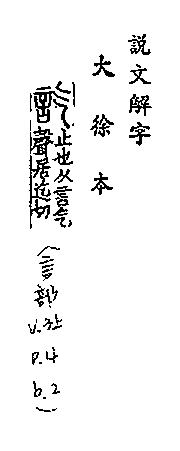 説文解字
大徐本
訖止也从言气
聲居迄切
(言部
v.3上
p.4
b.2)